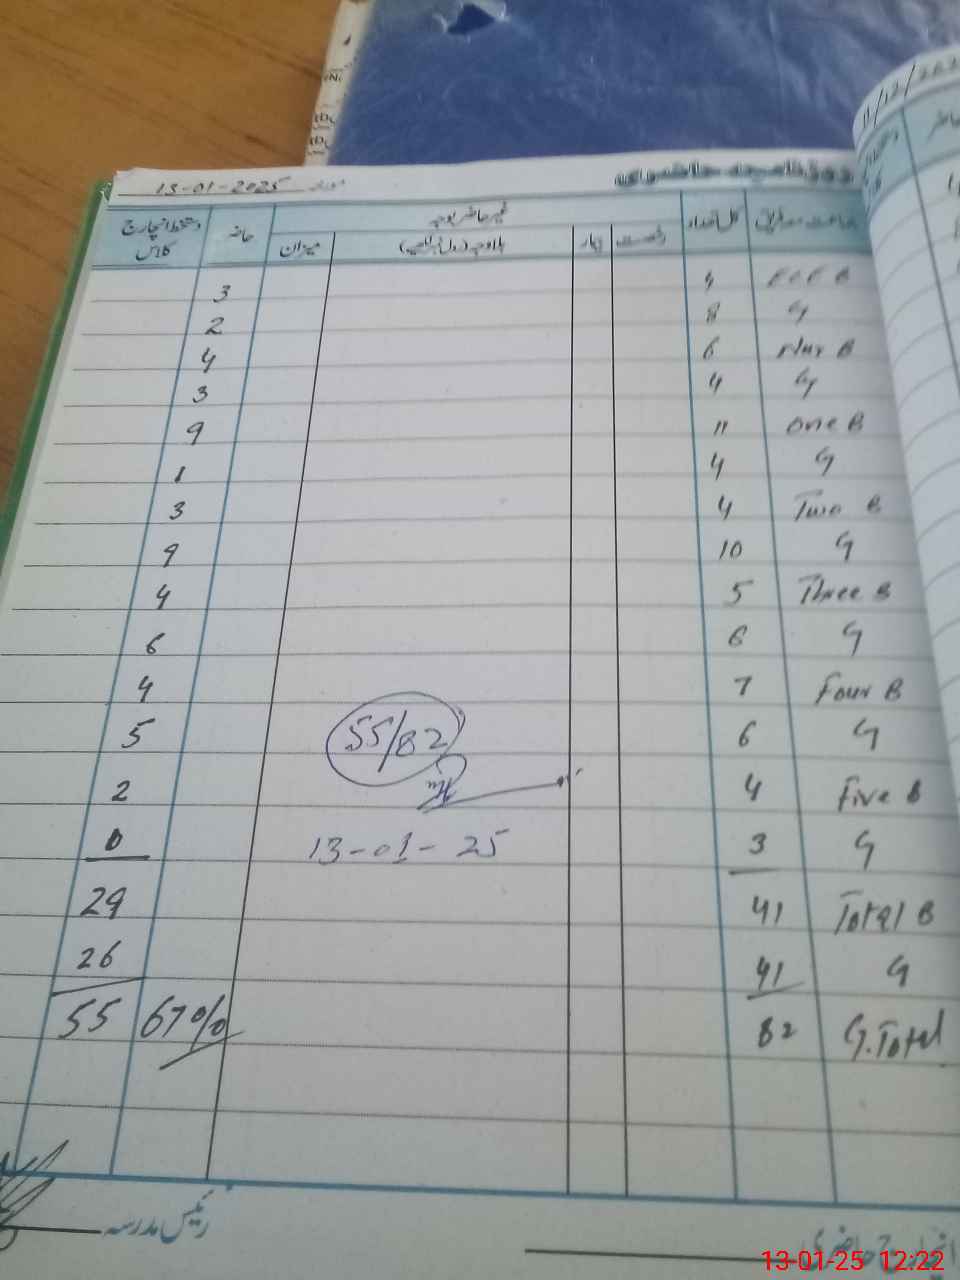 11/12/202
حاضر
روزنامچہ حاضری
مورخہ 13-01-2025
جماعت معہ فریق کل تعداد غیر حاضر بوجہ حاضر دستخط انچارج کلاس
رخصت بیمار میزان
ECE B 4 3
G 8 2
Nur B 6 4
G 4 3
One B 11 9
G 4 1
Two B 4 3
G 10 9
Three B 5 4
G 6 6
Four B 7 4
G 6 5
55/82
Five B 4 2
G 3 0
13-01-25
Total B 41 29
G 41 26
G.Total 82 55 67%
رئیس مدرسہ
انچارج حاضری
13-01-25 12:22